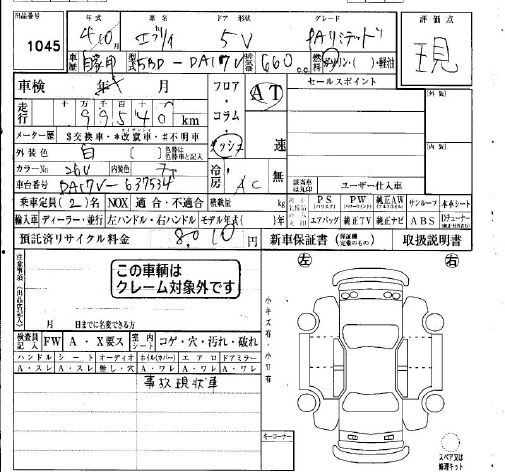 出品番号 年式 車名 ドア 形状 グレード 評価点
1045 エブリイ 5V PAリミテッド 現
車歴 自家用 型式 5BD-DA17V 排気量 660cc 燃料 ガソリン・( )・軽油
車検 年 月 フロア・コラム・ダッシュ AT セールスポイント
走行 十万 万 千 百 十
99540 km
メーター票 $交換車・*改ざん車・#不明車 速
外装色 白 ( )
カラーNo 26U 内装色 冷房 AC 無
車台番号 DA17V-637534 ユーザー仕入車
乗車定員(2)名 NOX 適合・不適合 積載量 kg PS PW 純正AW サンルーフ 本革シート
輸入車 ディーラー・並行 左ハンドル・右ハンドル モデル年式( )年 エアバッグ 純正TV 純正ナビ ABS
預託済リサイクル料金 8010円 新車保証書 (保証継定後のもの) 取扱説明書
注意事項(出品店記入)
この車輌は
クレーム対象外です
左 右
小キズ有・小凹有
月 日までに名変できる方
検査員記入 FW A・X要ス 室内シート コゲ・穴・汚れ・破れ
ハンドル シート オーディオ ホイル(カバー) エアロ ドアミラー
A・スレ A・スレ 無し・穴 A・ワレ A・ワレ A・ワレ
事故現状車
キーコーナー
スペア又は
修理キット